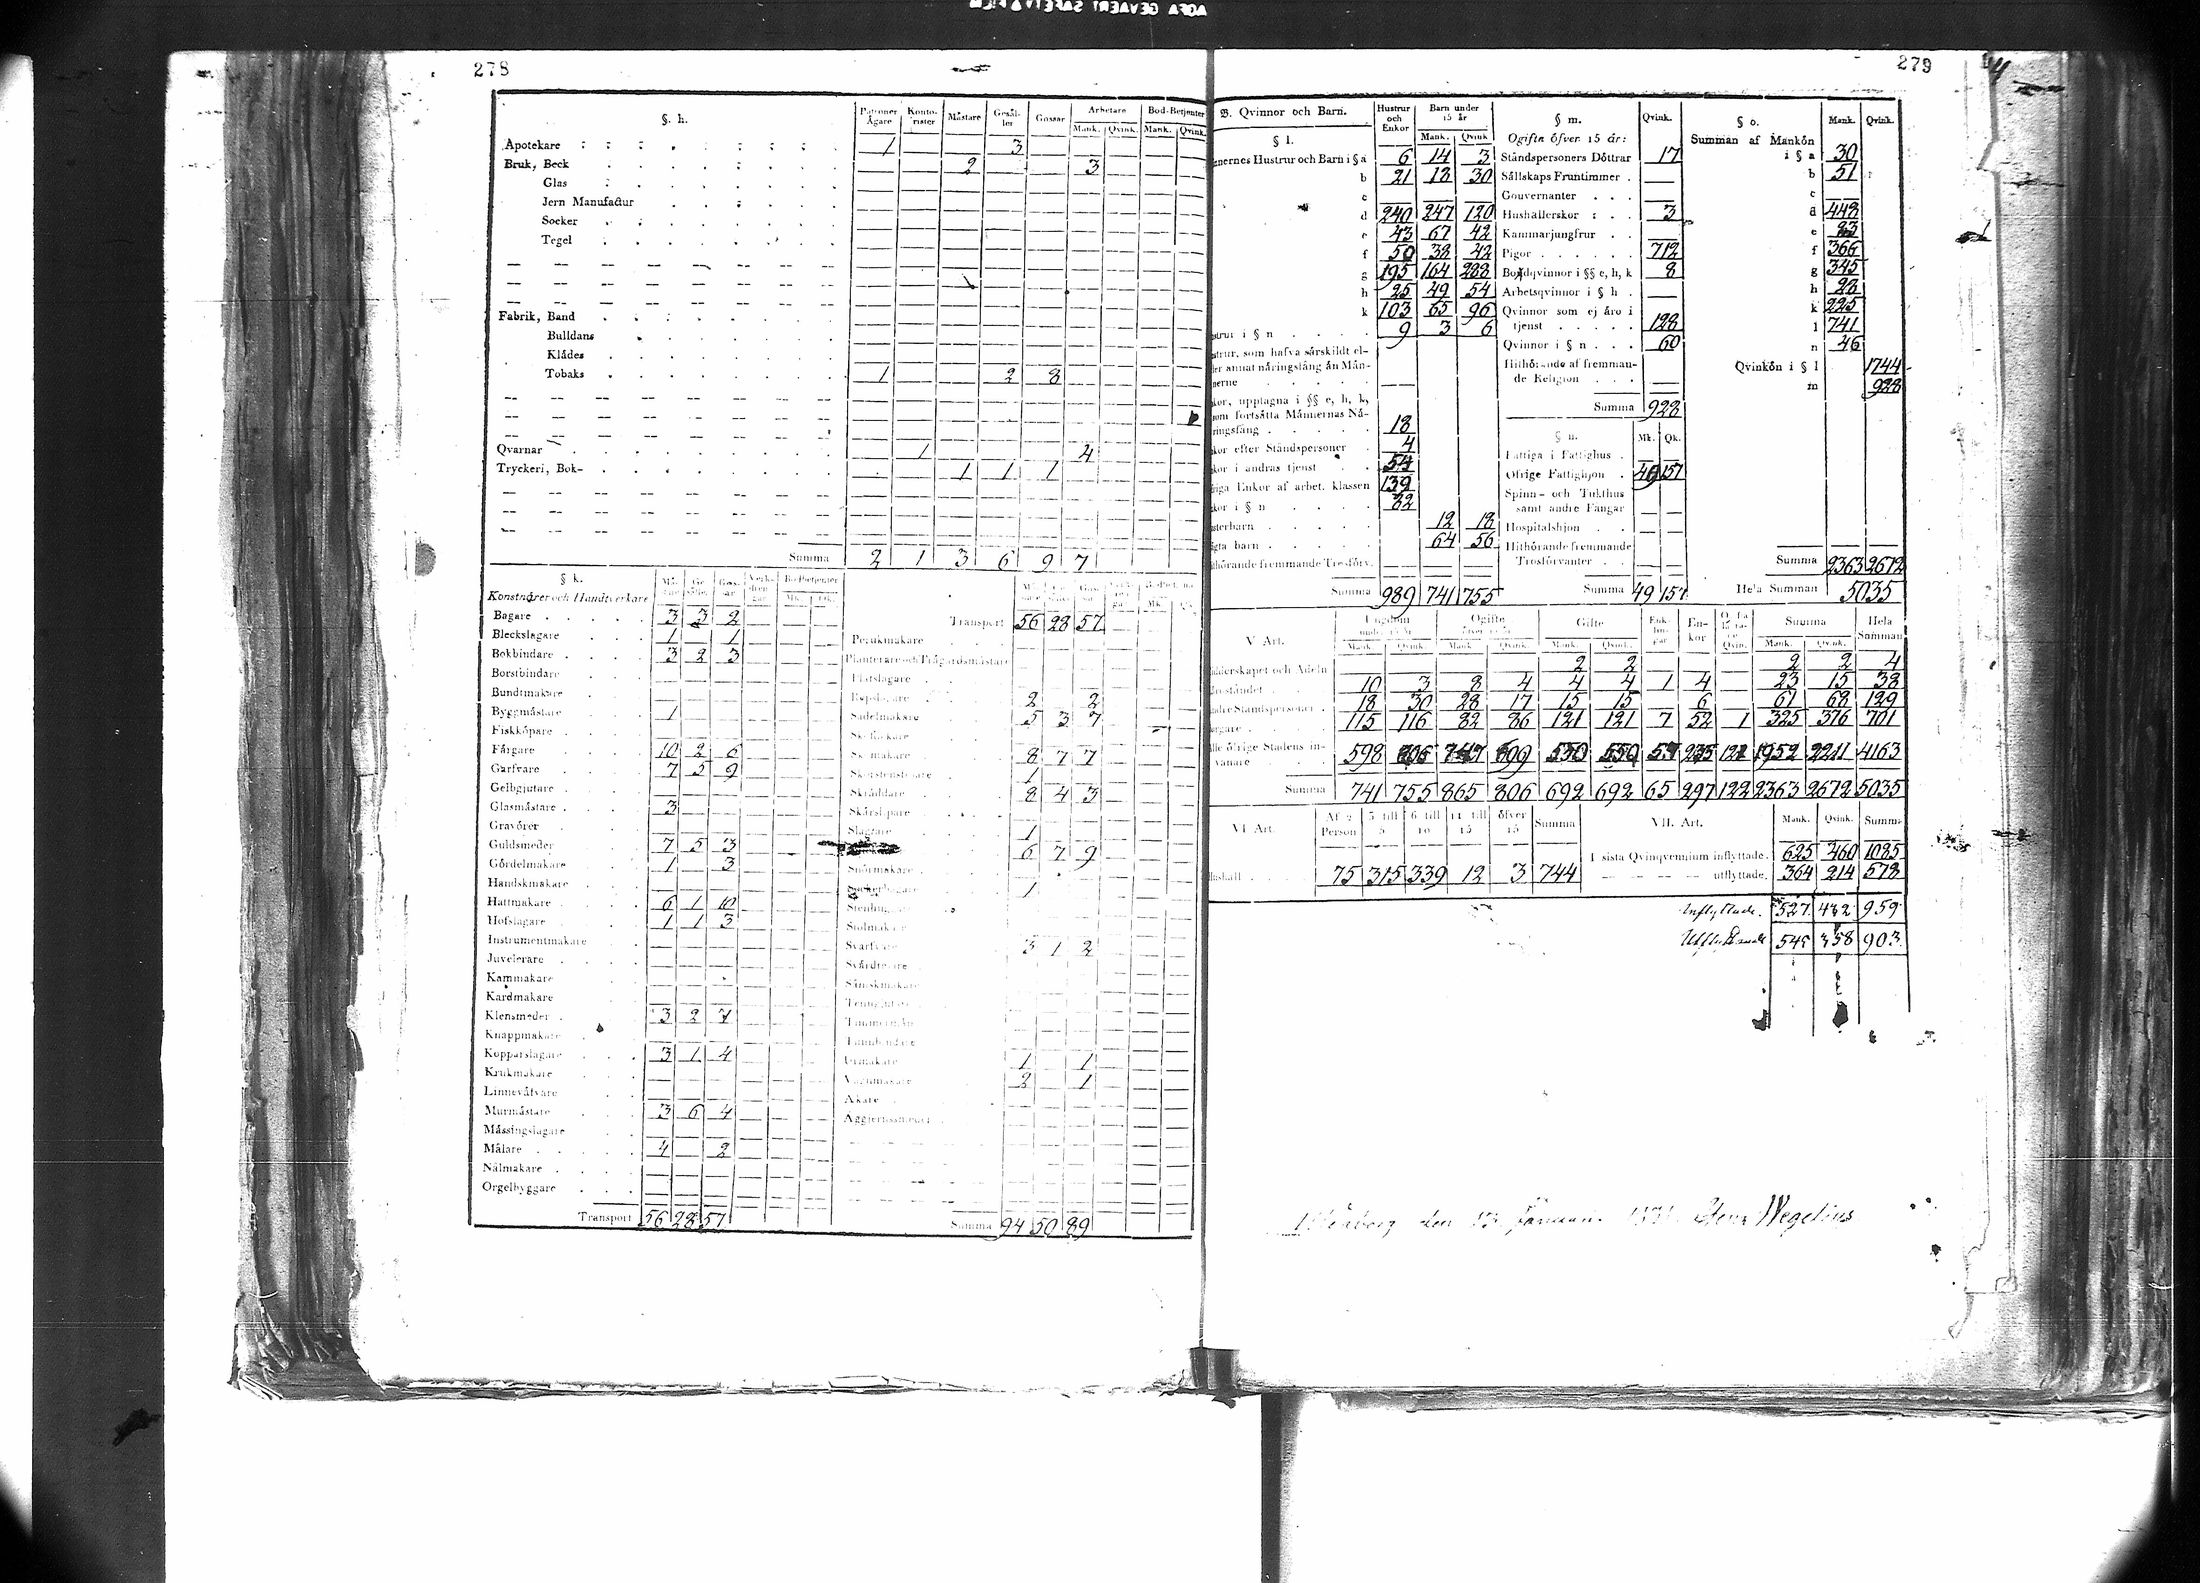 278
§. h.
Patroner Ägare Konto-rister Måstare Gesäl-ler Gossar Arbetare Mank. Qvink. Bod-Betjenter Mank. Qvink.
Apotekare 1 3
Bruk, Beck 2 3
Glas
Jern Manufactur
Socker
Tegel
Fabrik, Band
Bulldans
Klådes
Tobaks 1 2 8
Qvarnar 1 4
Tryckeri, Bok- 1 1 1
Summa 2 1 3 6 9 7
§ k.
Konstnårer och Handtverkare
Bagare 3 3 2
Bleckslagare 1 1
Bokbindare 3 2 3
Borstbindare
Bundtmakare
Byggmåstare 1
Fiskköpare
Fårgare 10 2 6
Garfvare 7 5 9
Gelbgjutare
Glasmåstare 3
Gravörer
Guldsmeder 7 5 3
Gördelmakare 1 3
Handskmakare
Hattmakare 6 1 10
Hofslagare 1 1 3
Instrumentmakare
Juvelerare
Kammakare
Kardmakare
Klensmeder 3 2 7
Knappmakare
Kopparslagare 3 1 4
Krukmakare
Linnevåfvare
Murmåstare 3 6 4
Måssingslagare
Målare 4 2
Nålmakare
Orgelbyggare
Transport 56 28 57
Transport 56 28 57
Perukmakare
Planterare och Trågårdsmåstare
Plåtslagare
Repslagare 2 2
Sadelmakare 5 3 7
Skomakare 8 7 7
Skorstensfejare 1
Skråddare 8 4 3
Skårslipare
Slagtare 1
6 7 9
Snörmakare
Sockerbagare 1
Stolmakare
Svarfvare 3 1 2
Såmskmakare
Tenngjutare
Timmermån
Tunnbindare
Urmakare 1 1
Vagnmakare 2 1
Åkare
Åggjernssmeder
Summa 94 50 89
279
B. Qvinnor och Barn. Hustrur och Enkor Barn under 15 år Mank. Qvink
§ l.
nernes Hustrur och Barn i § a 6 14 3
b 21 18 30
c
d 240 247 120
e 43 67 42
f 50 38 42
g 195 164 288
h 25 49 54
k 103 65 96
strur i § n 9 3 6
strur, som hafva sårskildt el-
ler annat nåringsfång ån Mån-
nerne
kor, upptagna i §§ e, h, k,
som fortsåtta Månnernas Nå-
ringsfång 18
kor efter Ståndspersoner 4
kor i andras tjenst 54
riga Enkor af arbet. klassen 139
kor i § n 82
sterbarn 12 18
gta barn 64 56
thörande fremmande Trosförv.
Summa 989 741 755
§ m. Qvink.
Ogifta öfver 15 år:
Ståndspersoners Döttrar 17
Sållskaps Fruntimmer
Gouvernanter
Hushållerskor 3
Kammarjungfrur
Pigor 712
Bodqvinnor i §§ e, h, k 8
Arbetsqvinnor i § h
Qvinnor som ej åro i
tjenst 128
Qvinnor i § n 60
Hithörande af fremman-
de Religion
Summa 928
§ n. Mk. Qk.
Fattiga i Fattighus
Öfrige Fattighjon 49 157
Spinn- och Tukthus
samt andre Fångar
Hospitalshjon
Hithörande fremmande
Trosförvanter
Summa 49 157
§ o. Mank. Qvink.
Summan af Mankön
i § a 30
b 51
c
d 448
e 83
f 366
g 345
h 28
k 225
l 741
n 46
Qvinkön i § l 1744
m 928
Summa 2363 2672
Hela Summan 5035
V. Art. Ungdom under 15 år Ogifte öfver 15 år Gifte Enk-lin-gar En-kor Summa Hela Summan
Mank. Qvink. Mank. Qvink. Mank. Qvink. Qvin. Mank. Qvink.
dderskapet och Adeln 2 2 2 2 4
dreståndet 10 3 8 4 4 4 1 4 23 15 38
ndre Ståndspersoner 18 30 28 17 15 15 6 61 68 129
orgare 115 116 82 86 121 121 7 52 1 325 376 701
lle öfrige Stadens in-
vånare 598 606 747 699 550 550 57 235 121 1952 2211 4163
Summa 741 755 865 806 692 692 65 297 122 2363 2672 5035
VI Art. Af 2 Person 3 till 5 6 till 10 11 till 15 öfver 15 Summa
Hushåll 75 315 339 12 3 744
VII. Art. Mank. Qvink. Summa
I sista Qvinqvennium inflyttade. 625 460 1085
utflyttade. 364 214 578
Inflyttade. 527. 432. 959.
Utflyttade 545 358 903.
den 13 Januari 1831. Wegelius